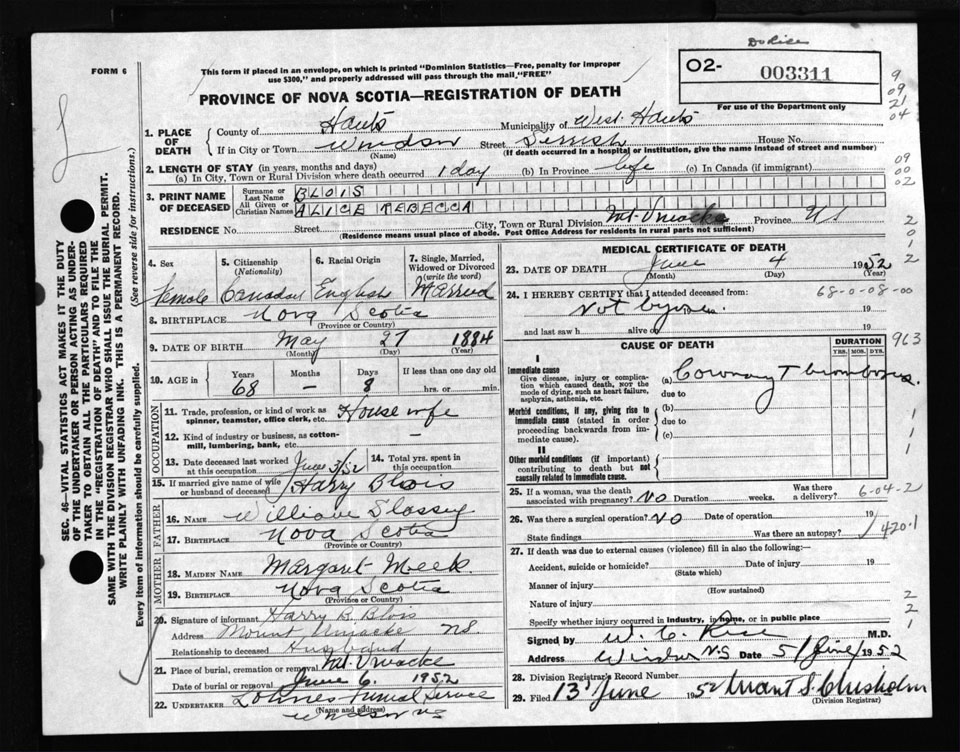 Dorise
FORM 6
This form if placed in an envelope, on which is printed "Dominion Statistics—Free, penalty for improper
use $300," and properly addressed will pass through the mail, "FREE"
O2- 003311
For use of the Department only
PROVINCE OF NOVA SCOTIA—REGISTRATION OF DEATH
9
09
21
04
1. PLACE OF DEATH County of Hants Municipality of West Hants
If in City or Town Windsor (Name) Street House No.
(If death occurred in a hospital or institution, give the name instead of street and number)
2. LENGTH OF STAY (in years, months and days)
(a) In City, Town or Rural Division where death occurred 1 day (b) In Province life (c) In Canada (if immigrant)
09
00
02
3. PRINT NAME OF DECEASED Surname or Last Name BLOIS
All Given or Christian Names ALICE REBECCA
RESIDENCE No. Street City, Town or Rural Division Mt. Uniacke Province NS
(Residence means usual place of abode. Post Office Address for residents in rural parts not sufficient)
2
0
1
2
4. Sex Female
5. Citizenship (Nationality) Canadian
6. Racial Origin English
7. Single, Married, Widowed or Divorced (write the word) Married
8. BIRTHPLACE Nova Scotia
(Province or Country)
9. DATE OF BIRTH May 27 1884
(Month) (Day) (Year)
10. AGE in Years 68 Months – Days 8 If less than one day hrs. or min.
OCCUPATION
11. Trade, profession, or kind of work as spinner, teamster, office clerk, etc. Housewife
12. Kind of industry or business, as cotton-mill, lumbering, bank, etc. –
13. Date deceased last worked at this occupation June 3/52
14. Total yrs. spent in this occupation
15. If married give name of wife or husband of deceased Harry Blois
FATHER
16. NAME William
17. BIRTHPLACE Nova Scotia
(Province or Country)
MOTHER
18. MAIDEN NAME Margaret Meek
19. BIRTHPLACE Nova Scotia
(Province or Country)
20. Signature of informant Harry B. Blois
Address Mount Uniacke NS.
Relationship to deceased Husband
21. Place of burial, cremation or removal Mt. Uniacke
Date of burial or removal June 6. 1952
22. UNDERTAKER Funeral Service
(Name and address)
Windsor NS
MEDICAL CERTIFICATE OF DEATH
23. DATE OF DEATH June 4 1952
(Month) (Day) (Year)
24. I HEREBY CERTIFY that I attended deceased from: 68-0-08-00
Not 19
and last saw h alive on 19
CAUSE OF DEATH
DURATION
YRS. MOS. DYS.
963
I
Immediate cause
Give disease, injury or complication which caused death, not the mode of dying, such as heart failure, asphyxia, asthenia, etc.
(a) Coronary Thrombosis
due to
Morbid conditions, if any, giving rise to immediate cause (stated in order proceeding backwards from immediate cause).
(b)
due to
(c)
1
1
II
Other morbid conditions (if important) contributing to death but not causally related to immediate cause.
25. If a woman, was the death associated with pregnancy? No Duration weeks. Was there a delivery?
6-04-2
26. Was there a surgical operation? No Date of operation 19
State findings Was there an autopsy?
420.1
27. If death was due to external causes (violence) fill in also the following:—
Accident, suicide or homicide? Date of injury 19
(State which)
Manner of injury
(How sustained)
Nature of injury
2
2
1
Specify whether injury occurred in industry, in home, or in public place
Signed by W. C. Rise M.D.
Address Windsor N.S Date 5/June/1952
28. Division Registrar's Record Number
29. Filed 13 June 1952 S. Chisholm
(Division Registrar)
SEC. 46—VITAL STATISTICS ACT MAKES IT THE DUTY
OF THE UNDERTAKER OR PERSON ACTING AS UNDERTAKER TO OBTAIN ALL THE PARTICULARS REQUIRED
IN THE "REGISTRATION OF DEATH" AND TO FILE THE
SAME WITH THE DIVISION REGISTRAR WHO SHALL ISSUE THE BURIAL PERMIT.
WRITE PLAINLY WITH UNFADING INK. THIS IS A PERMANENT RECORD.
Every item of information should be carefully supplied. (See reverse side for instructions.)